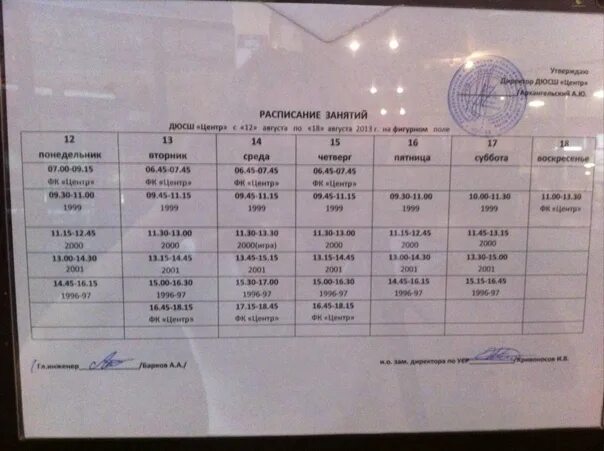 Утверждаю
Директор ДЮСШ «Центр»
/Архангельский А.Ю.
РАСПИСАНИЕ ЗАНЯТИЙ
ДЮСШ «Центр» с «12» августа по «18» августа 2013 г. на фигурном поле
12 13 14 15 16 17 18
понедельник вторник среда четверг пятница суббота воскресенье
07.00-09.15 06.45-07.45 06.45-07.45 06.45-07.45
ФК «Центр» ФК «Центр» ФК «Центр» ФК «Центр»
09.30-11.00 09.45-11.15 09.45-11.15 09.45-11.15 09.30-11.00 10.00-11.30 11.00-13.30
1999 1999 1999 1999 1999 1999 ФК «Центр»
11.15-12.45 11.30-13.00 11.30-13.30 11.30-13.00 11.15-12.45 11.45-13.15
2000 2000 2000(игра) 2000 2000 2000
13.00-14.30 13.15-14.45 13.45-15.15 13.15-14.45 13.00-14.30 13.30-15.00
2001 2001 2001 2001 2001 2001
14.45-16.15 15.00-16.30 15.30-17.00 15.00-16.30 14.45-16.15 15.15-16.45
1996-97 1996-97 1996-97 1996-97 1996-97 1996-97
16.45-18.15 17.15-18.45 16.45-18.15
ФК «Центр» ФК «Центр» ФК «Центр»
Гл.инженер /Барков А.А./ и.о. зам. директора по УСР /Кривоносов И.В.